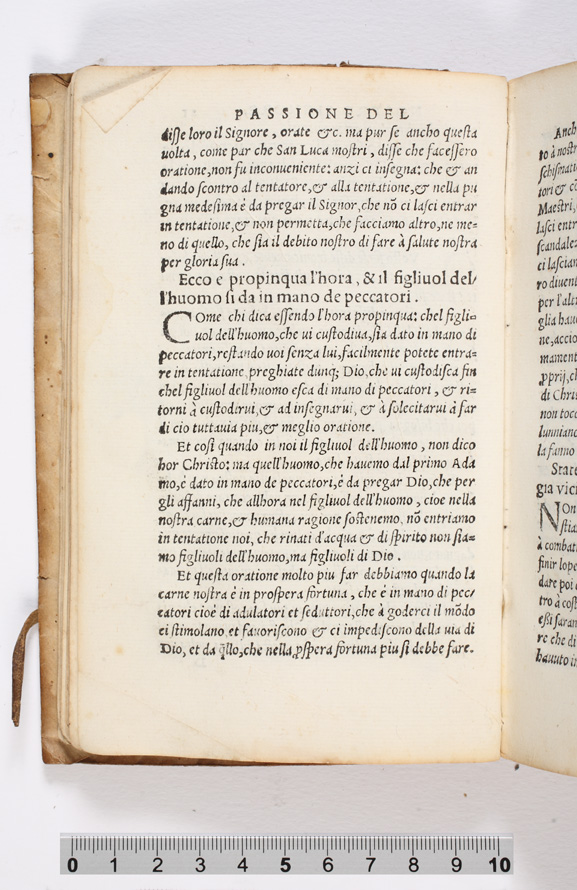 PASSIONE DEL
disse loro il Signore, orate &c. ma pur se ancho questa
uolta, come par che San Luca mostri, disse che facessero
oratione, non fu inconueniente: anzi ci insegna: che & an
dando scontro al tentatore, & alla tentatione, & nella pu
gna medesima è da pregar il Signor, che nō ci lasci entrar
in tentatione, & non permetta, che facciamo altro, ne me=
no di quello, che sia il debito nostro di fare à salute nostra
per gloria sua.
Ecco e propinqua l'hora, & il figliuol del/
l'huomo si da in mano de peccatori.
COme chi dica essendo l'hora propinqua: chel figli=
uol dell'huomo, che ui custodiua, sia dato in mano di
peccatori, restando uoi senza lui, facilmente potete entra=
re in tentatione, preghiate dunq; Dio, che ui custodisca fin
chel figliuol dell'huomo esca di mano di peccatori, & ri=
torni à custodirui, & ad insegnarui, & à solecitarui à far
di cio tuttauia piu, & meglio oratione.
Et cosi quando in noi il figliuol dell'huomo, non dico
hor Christo: ma quell'huomo, che hauemo dal primo Ada
mo, è dato in mano de peccatori, è da pregar Dio, che per
gli affanni, che allhora nel figliuol dell'huomo, cioe nella
nostra carne, & humana ragione sostenemo, nō entriamo
in tentatione noi, che rinati d'acqua & di spirito non sia=
mo figliuoli dell'huomo, ma figliuoli di Dio.
Et questa oratione molto piu far debbiamo quando la
carne nostra è in prospera fortuna, che è in mano di pec/
catori cioè di adulatori et seduttori, che à goderci il mōdo
ci stimolano et fauoriscono & ci impediscono della uia di
Dio, et da q̄llo, che nella ꝓspera fortuna piu si debbe fare.
Anch
to à nostr
schismati
tori & cō
Maestri,
lasci entr
scandalez
ci lascian
ro diuent
per l'alt
glia hau
ne, accio
mament
ꝓprij, ch
di Chris
non tocc
lunniano
la fanno
State
gia vici
NOn
stia
à combat
finir lope
dare poi
tro à cost
essi saran
re che di
hauuto i
0 1 2 3 4 5 6 7 8 9 10